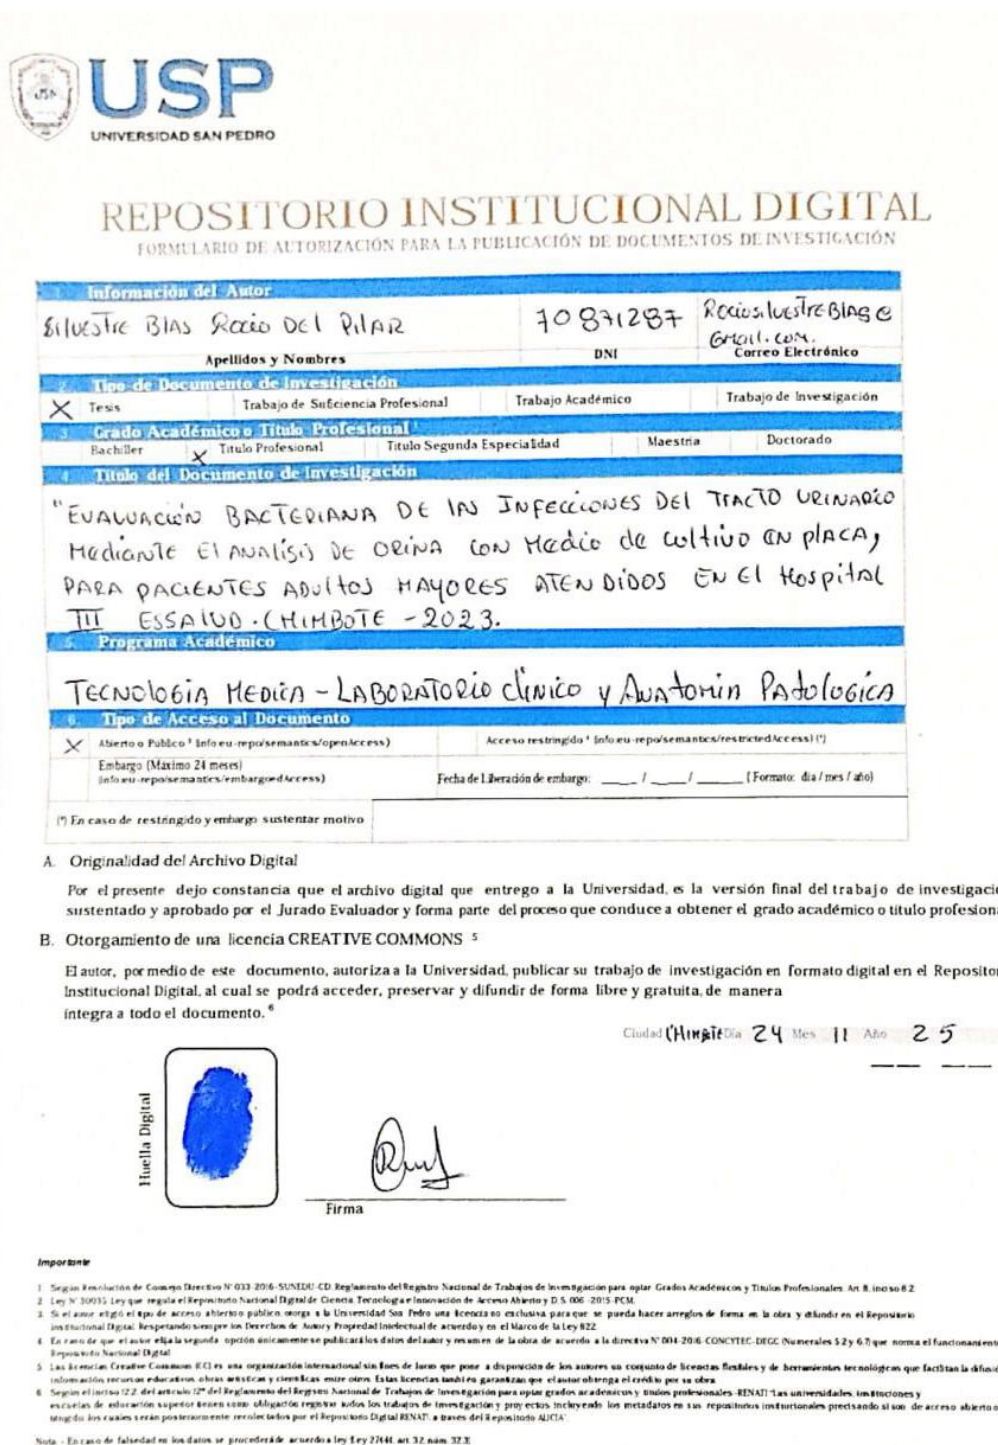 USP
UNIVERSIDAD SAN PEDRO
REPOSITORIO INSTITUCIONAL DIGITAL
FORMULARIO DE AUTORIZACIÓN PARA LA PUBLICACIÓN DE DOCUMENTOS DE INVESTIGACIÓN
1. Información del Autor
SilvestRe BlAS Rocio DEl PilAR 70871287 RociosilvestreBlAS@
GMail.com.
Apellidos y Nombres DNI Correo Electrónico
2. Tipo de Documento de Investigación
X Tesis Trabajo de Suficiencia Profesional Trabajo Académico Trabajo de Investigación
3. Grado Académico o Título Profesional 1
Bachiller X Título Profesional Título Segunda Especialidad Maestría Doctorado
4. Título del Documento de Investigación
"EVALUACIÓN BACTERIANA DE lAS INFECCIONES DEL TRACTO URINARIO
Mediante El ANALÍSIS DE ORINA CON Medio de cultivo EN plACA,
PARA PACIENTES ADultOS MAYORES ATENDIDOS EN El Hospital
III ESSALUD.CHIMBOTE - 2023.
5. Programa Académico
TECNOlOGíA MEDICA - LABORATORIO clíNICO y ANATOMIA PATOlOGICA
6. Tipo de Acceso al Documento
X Abierto o Público 3 (info:eu-repo/semantics/openAccess) Acceso restringido 4 (info:eu-repo/semantics/restrictedAccess) (*)
Embargo (Máximo 24 meses)
(info:eu-repo/semantics/embargoedAccess) Fecha de Liberación de embargo: ____ / ____ / ______ (Formato: día / mes / año)
(*) En caso de restringido y embargo sustentar motivo
A. Originalidad del Archivo Digital
Por el presente dejo constancia que el archivo digital que entrego a la Universidad, es la versión final del trabajo de investigació
sustentado y aprobado por el Jurado Evaluador y forma parte del proceso que conduce a obtener el grado académico o título profesiona
B. Otorgamiento de una licencia CREATIVE COMMONS 5
El autor, por medio de este documento, autoriza a la Universidad, publicar su trabajo de investigación en formato digital en el Repositor
Institucional Digital, al cual se podrá acceder, preservar y difundir de forma libre y gratuita, de manera
íntegra a todo el documento. 6
Ciudad Día 24 Mes 11 Año 25
Huella Digital
Firma
Importante
1 Según Resolución de Consejo Directivo N° 033-2016-SUNEDU-CD Reglamento del Registro Nacional de Trabajos de Investigación para optar Grados Académicos y Títulos Profesionales. Art. 8, inciso 8.2
2 Ley N° 30035 Ley que regula el Repositorio Nacional Digital de Ciencia Tecnología e Innovación de Acceso Abierto y D.S. 006-2015-PCM.
3 Si el autor eligió el tipo de acceso abierto o público otorga a la Universidad San Pedro una licencia no exclusiva para que se pueda hacer arreglos de forma en la obra y difundir en el Repositorio
Institucional Digital. Respetando siempre los Derechos de Autor y Propiedad Intelectual de acuerdo y en el Marco de la Ley 822
4 En caso de que el autor elija la segunda opción únicamente se publicará los datos del autor y resumen de la obra de acuerdo a la directiva N° 004-2016-CONCYTEC-DEGC (Numerales 5.2 y 6.7) que norma el funcionamiento
Repositorio Nacional Digital
5 Las licencias Creative Commons (CC) es una organización internacional sin fines de lucro que pone a disposición de los autores un conjunto de licencias flexibles y de herramientas tecnológicas que facilitan la difusi
información recursos educativos obras artísticas y científicas entre otros. Estas licencias también garantizan que el autor obtenga el crédito por su obra
6 Según el inciso 12.2 del artículo 12° del Reglamento del Registro Nacional de Trabajos de Investigación para optar grados académicos y títulos profesionales -RENATI "Las universidades, instituciones y
escuelas de educación superior tienen como obligación registrar todos los trabajos de investigación y proyectos incluyendo los metadatos en sus repositorios institucionales precisando si son de acceso abierto o
los cuales serán posteriormente recolectados por el Repositorio Digital RENATI, a través del Repositorio ALICIA".
Nota: - En caso de falsedad en los datos, se procederá de acuerdo a ley (Ley 27444, art. 32, núm. 32.3)